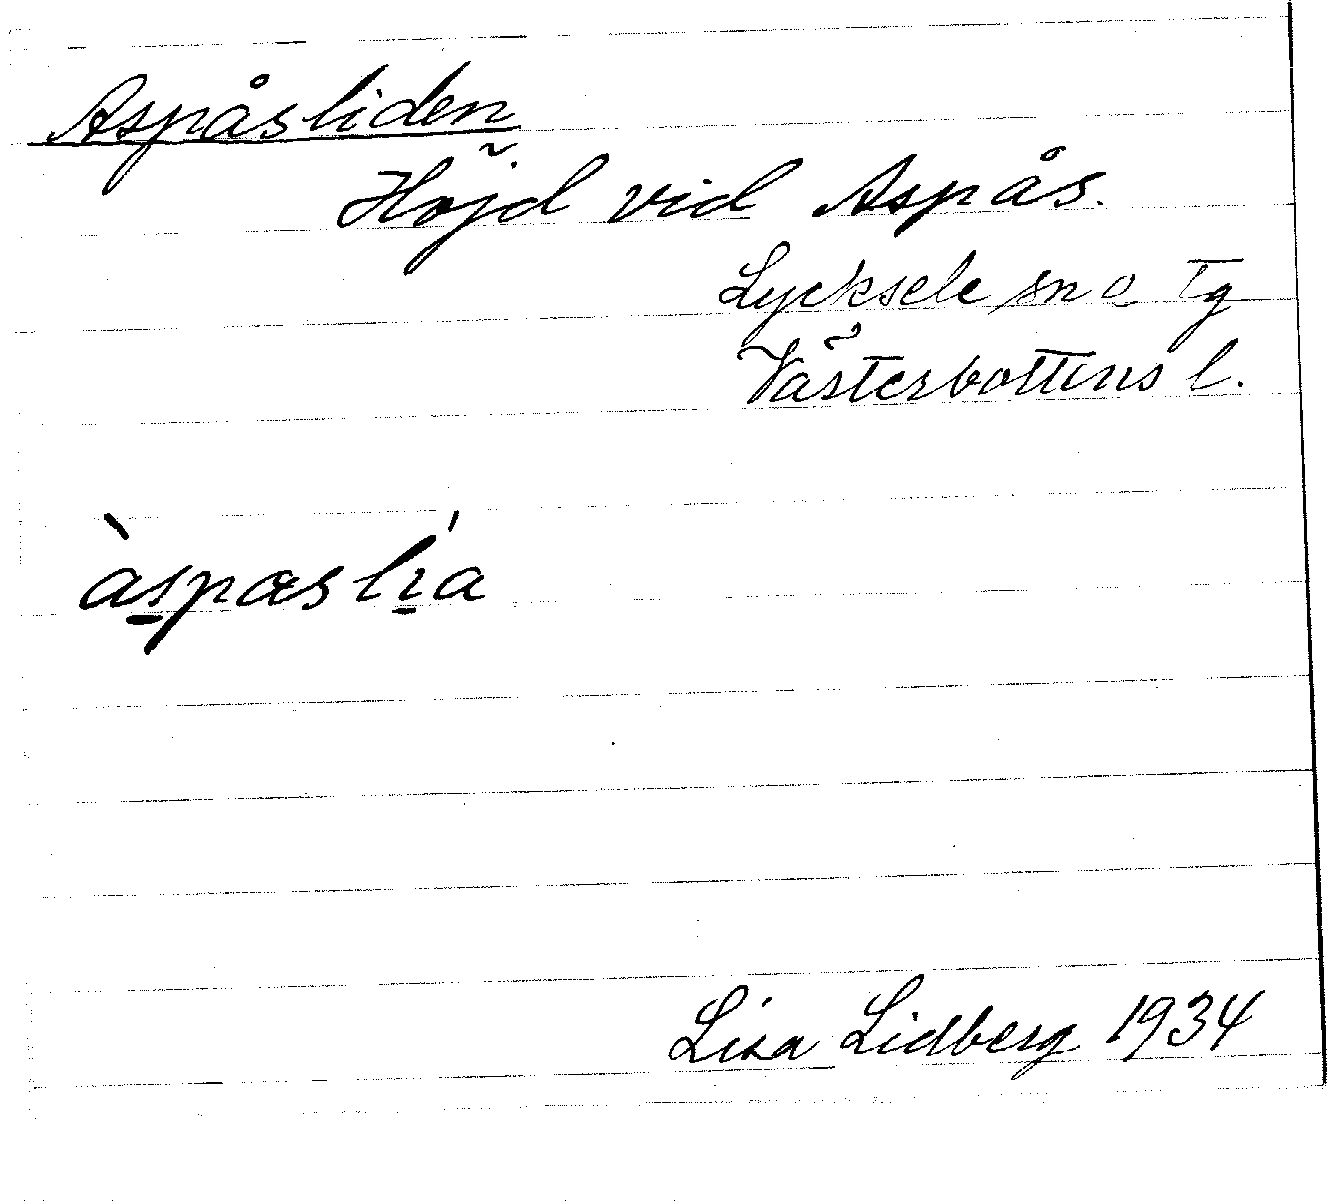 Aspåsliden
Höjd vid Aspås.
Lycksele sn o. Tg
Västerbottens l.
àspæslı́a
Lisa Lidberg 1934